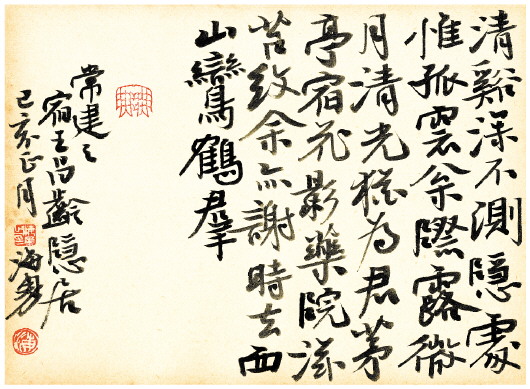 清谿深不測隱處
惟孤雲枀際露微
月清光猶為君茅
亭宿花影藥院滋
苔紋余亦謝時去西
山鸞鶴羣
常建之
宿王昌齡隱居
己亥正月